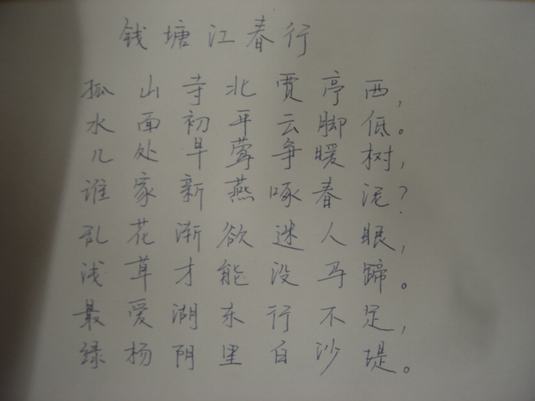 钱塘江春行
孤山寺北贾亭西，
水面初平云脚低。
几处早莺争暖树，
谁家新燕啄春泥？
乱花渐欲迷人眼，
浅草才能没马蹄。
最爱湖东行不足，
绿杨阴里白沙堤。